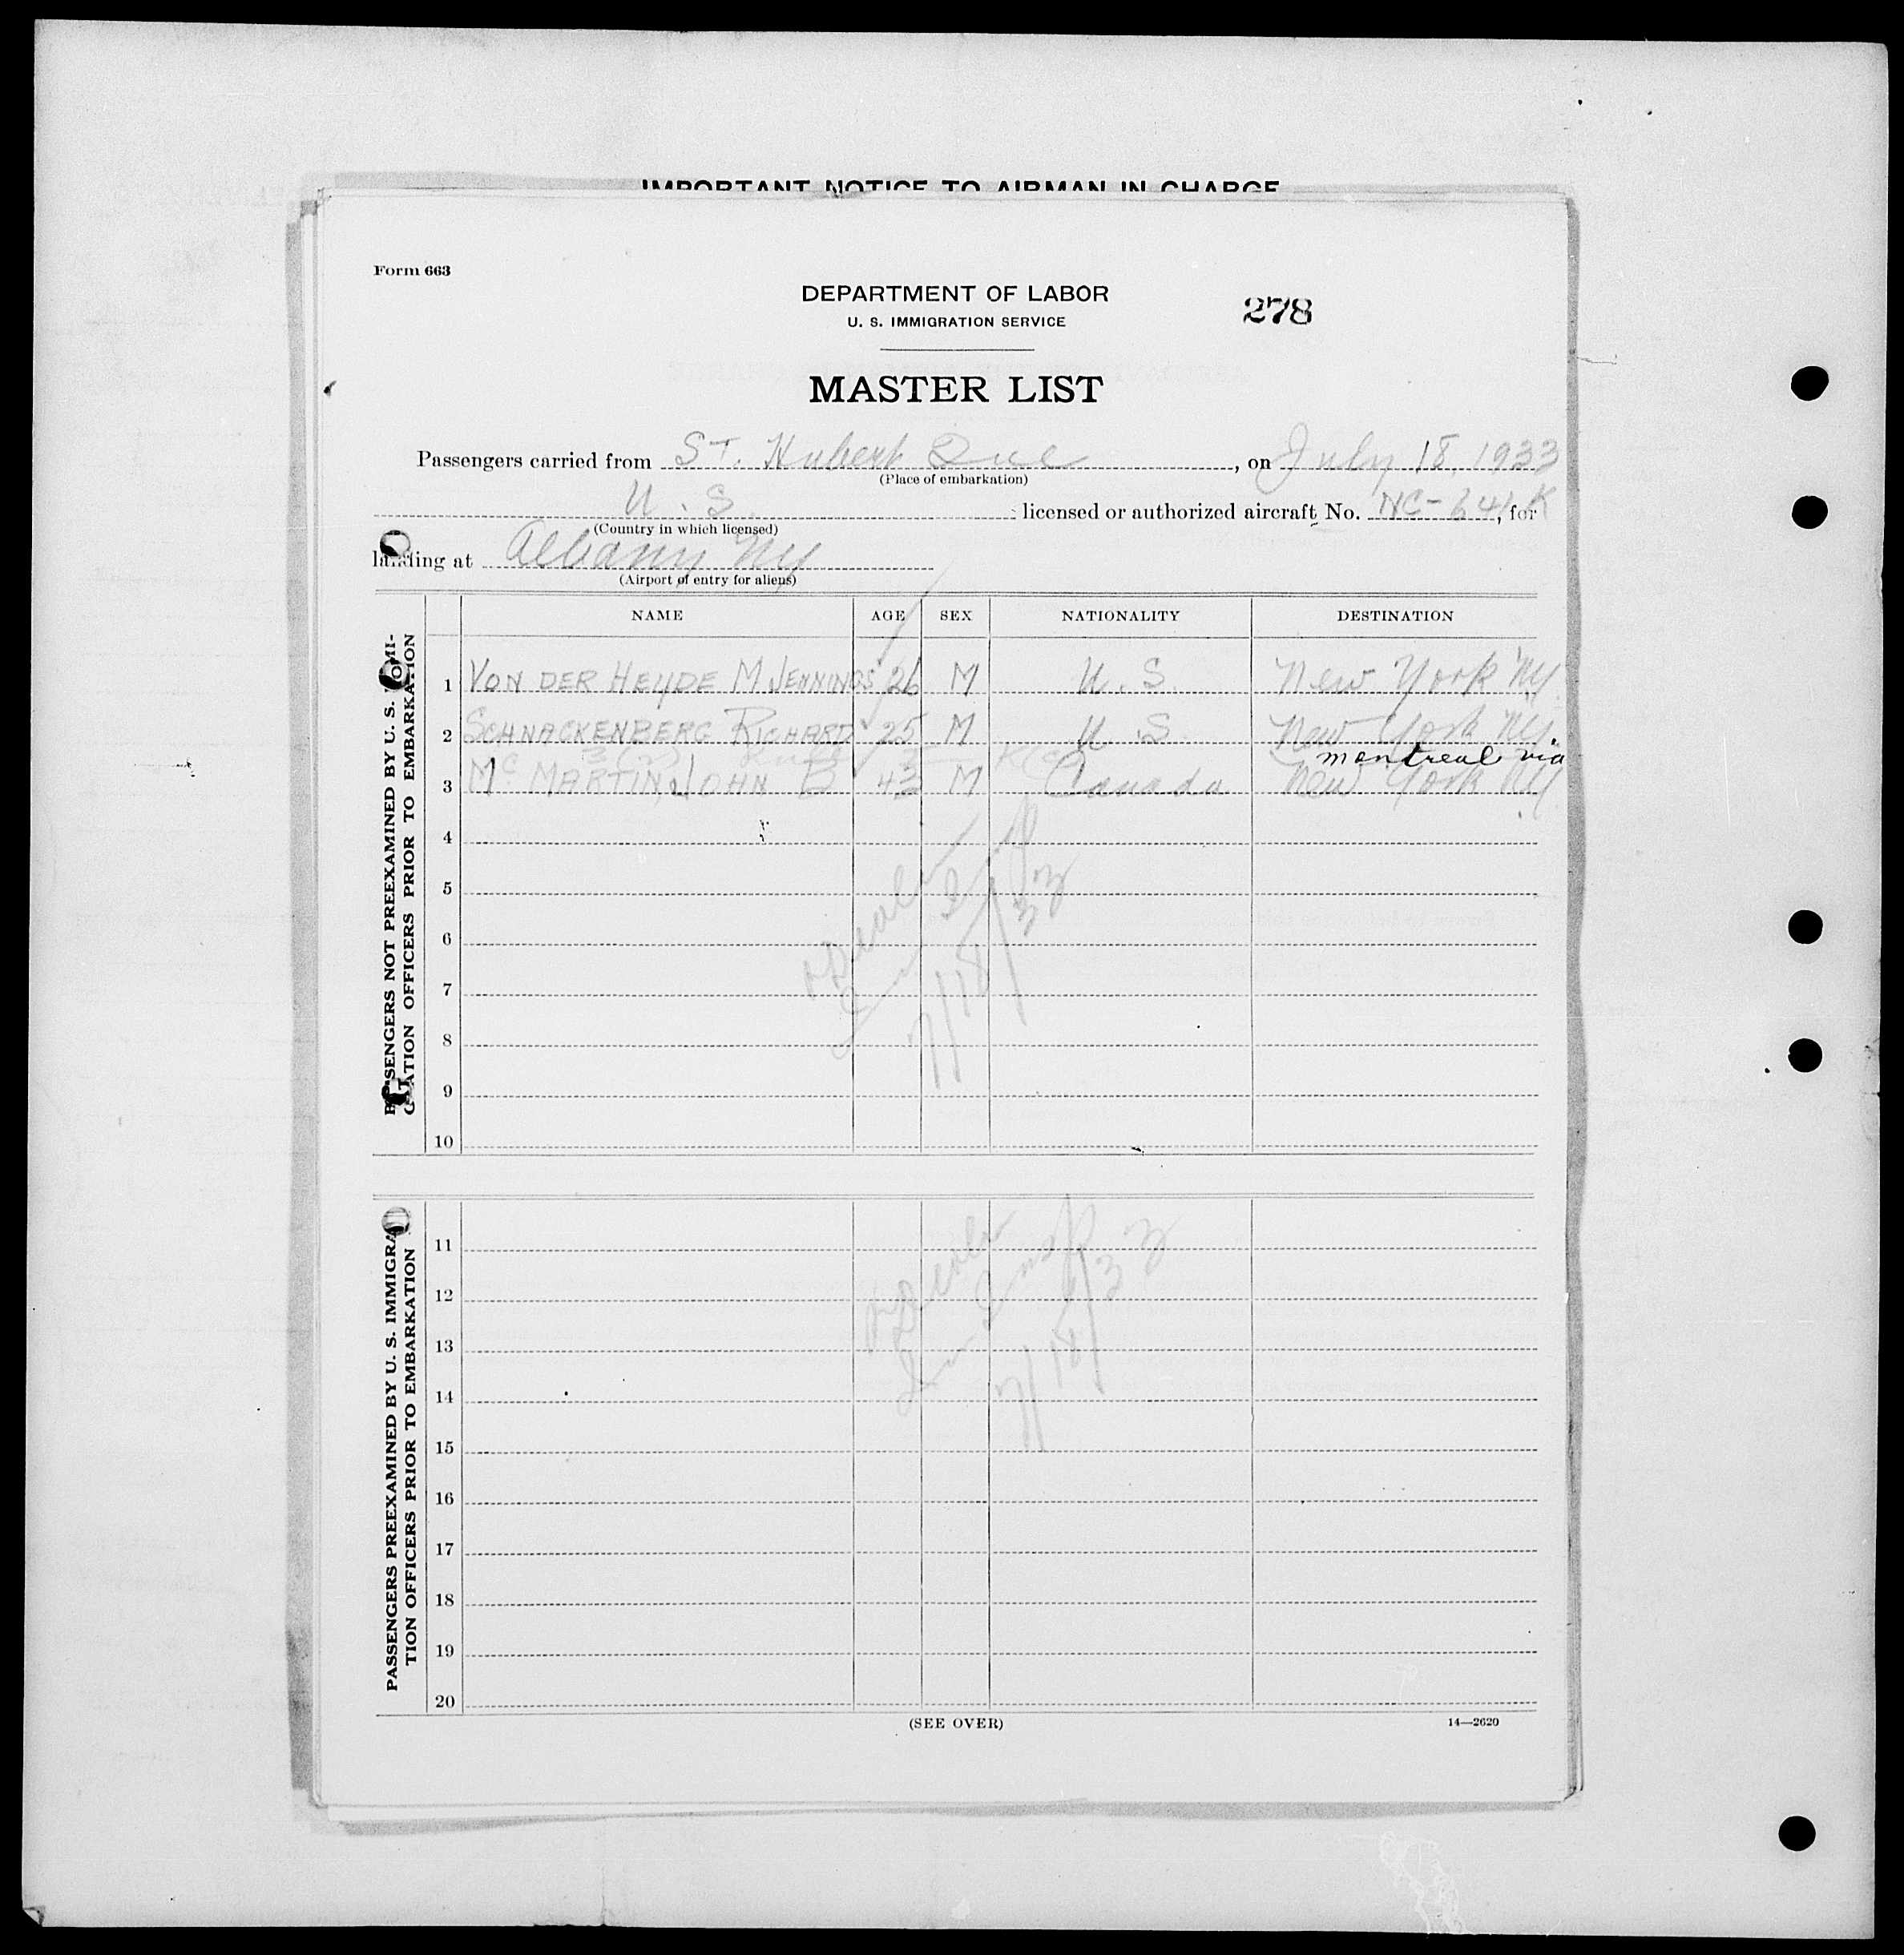 IMPORTANT NOTICE TO AIRMAN IN CHARGE
Form 663
DEPARTMENT OF LABOR
278
U. S. IMMIGRATION SERVICE
MASTER LIST
Passengers carried from ST. Hubert Que, on July 18, 1933
(Place of embarkation)
U.S. licensed or authorized aircraft No. NC-641K, for
(Country in which licensed)
landing at Albany NY
(Airport of entry for aliens)
NAME AGE SEX NATIONALITY DESTINATION
PASSENGERS NOT PREEXAMINED BY U. S. IMMI-
GRATION OFFICERS PRIOR TO EMBARKATION
1 VON DER HEYDE M JENNINGS 26 M U.S. New York NY
2 SCHNACKENBERG RICHARD 25 M U.S. New York NY
montreal via
3 Mc MARTIN, JOHN B 43 M Canada New York NY
4
5
6
7
7/18/33
8
9
10
PASSENGERS PREEXAMINED BY U. S. IMMIGRA-
TION OFFICERS PRIOR TO EMBARKATION
11
12
13
7/18/33
14
15
16
17
18
19
20
(SEE OVER)
14—2620